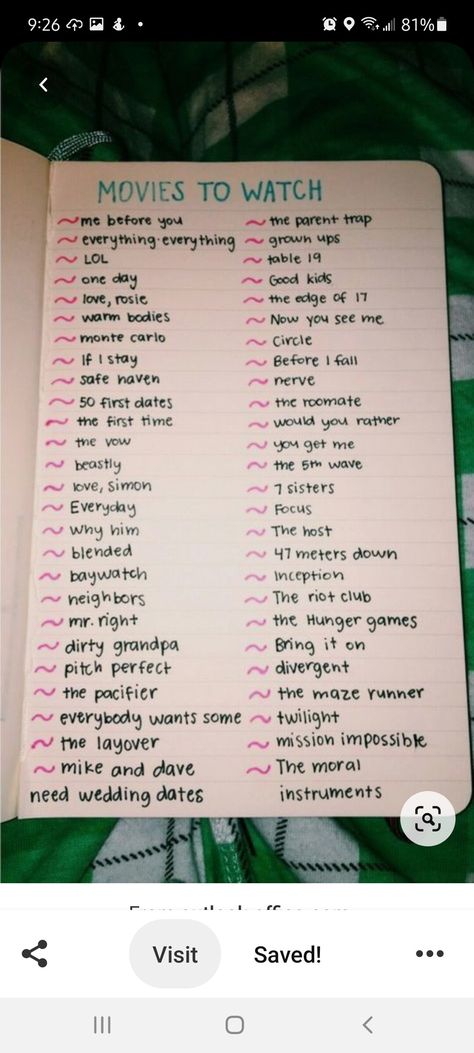 9:26
81%
MOVIES TO WATCH
~me before you
~everything.everything
~LOL
~one day
~love, rosie
~warm bodies
~monte carlo
~If I stay
~safe haven
~50 first dates
~the first time
~the vow
~beastly
~love, simon
~Everyday
~why him
~blended
~baywatch
~neighbors
~mr. right
~dirty grandpa
~pitch perfect
~the pacifier
~everybody wants some
~the layover
~mike and dave
need wedding dates
~the parent trap
~grown ups
~table 19
~Good kids
~the edge of 17
~Now you see me
~Circle
~Before I fall
~nerve
~the roomate
~would you rather
~you get me
~the 5th wave
~7 sisters
~Focus
~The host
~47 meters down
~Inception
~The riot club
~the Hunger games
~Bring it on
~divergent
~the maze runner
~twilight
~mission impossible
~The moral
instruments
Visit
Saved!